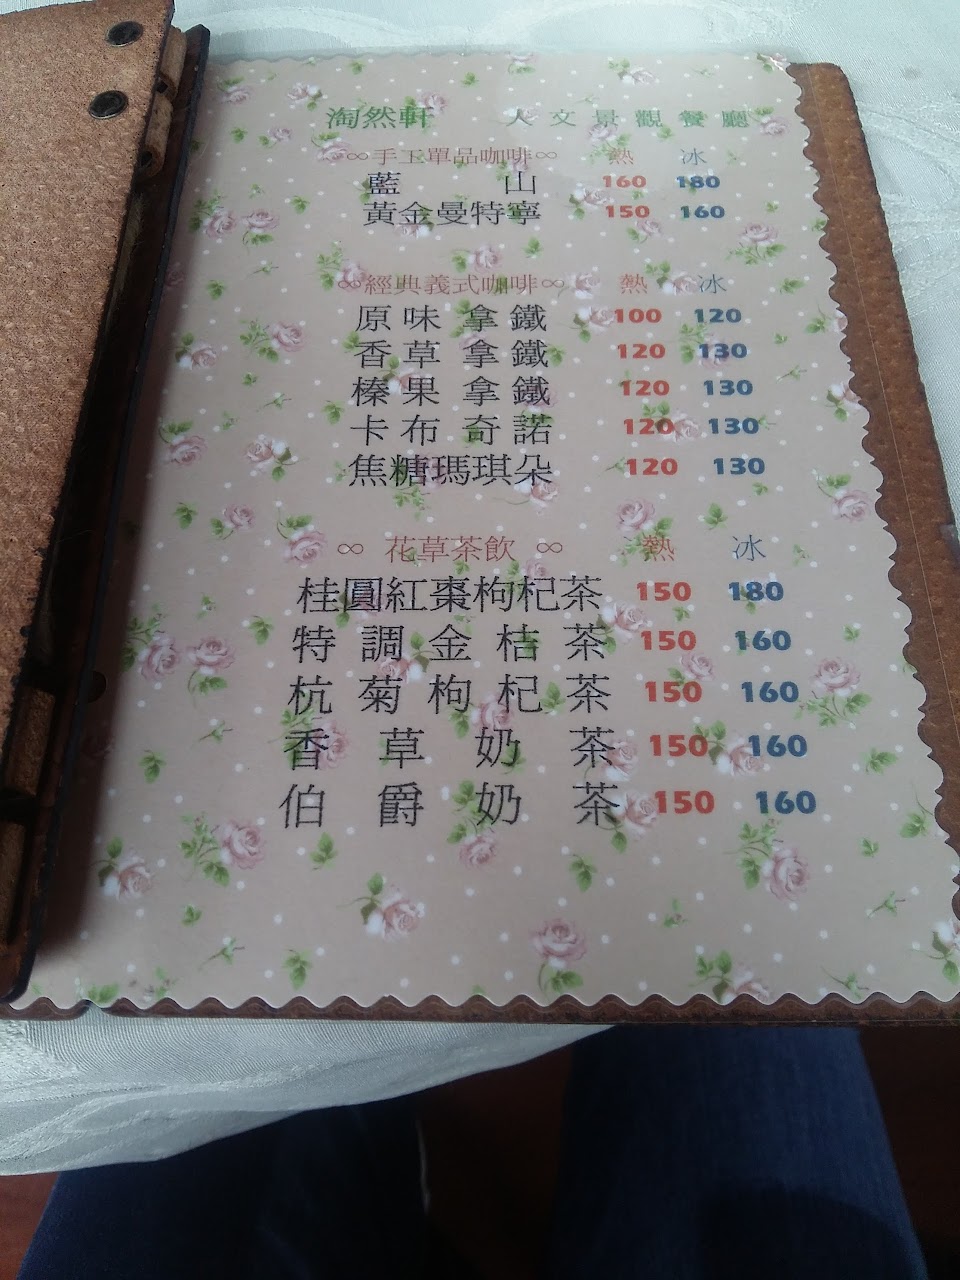 淘然軒 人文景觀餐廳
∞手工單品咖啡∞ 熱 冰
藍山 160 180
黃金曼特寧 150 160
∞經典義式咖啡∞ 熱 冰
原味拿鐵 100 120
香草拿鐵 120 130
榛果拿鐵 120 130
卡布奇諾 120 130
焦糖瑪琪朵 120 130
∞ 花草茶飲 ∞ 熱 冰
桂圓紅棗枸杞茶 150 180
特調金桔茶 150 160
杭菊枸杞茶 150 160
香草奶茶 150 160
伯爵奶茶 150 160